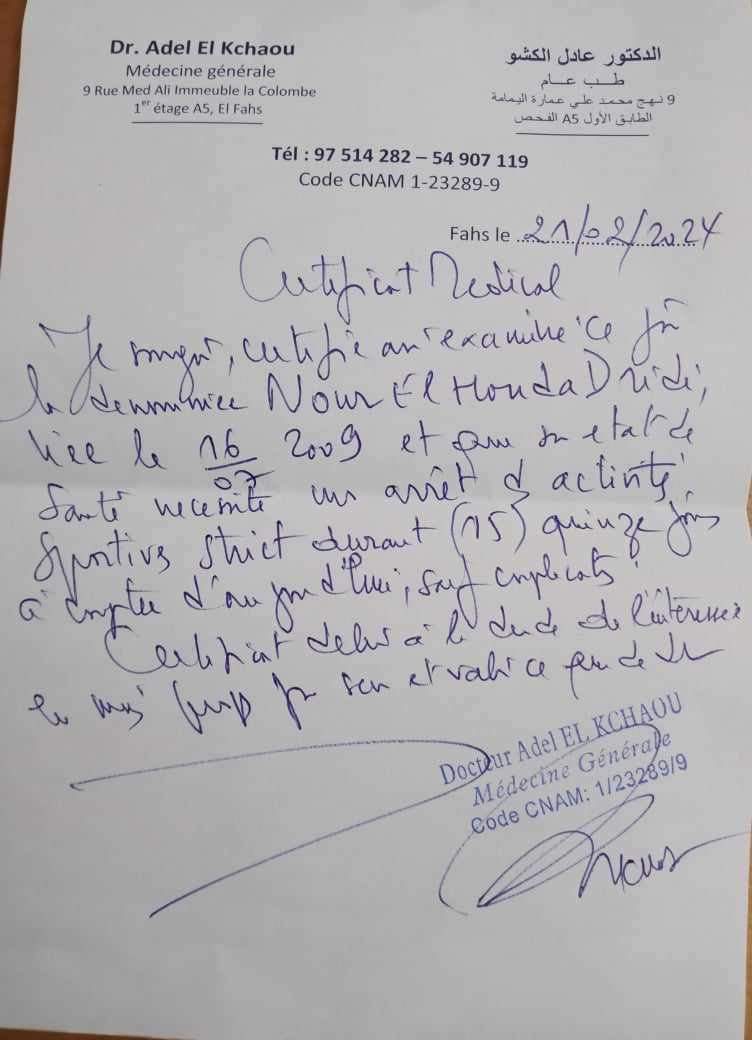 Dr. Adel El Kchaou
Médecine générale
9 Rue Med Ali Immeuble la Colombe
1er étage A5, El Fahs
الدكتور عادل الكشو
طب عام
9 نهج محمد علي عمارة اليمامة
الطابق الأول A5 الفحص
Tél : 97 514 282 – 54 907 119
Code CNAM 1-23289-9
Fahs le 21/02/2024
Certificat Medical
Je certifie examiné ce
la denommée Nour El Houda Dridi,
née le 16/07 2009 et que son etat de
santé necessite un arrêt d'activité
sportive strict durant (15) quinze jours
à compter d'aujourd'hui, sauf
Certificat à la de l'intéressée
ce de
Docteur Adel EL KCHAOU
Médecine Générale
Code CNAM: 1/23289/9